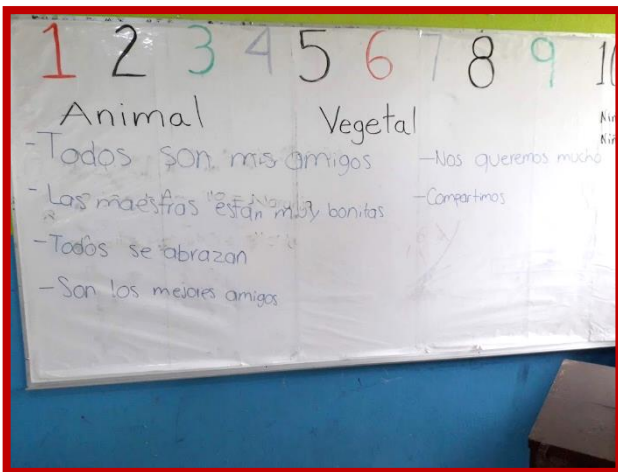 1 2 3 4 5 6 7 8 9 10
Animal Vegetal
- Todos son mis amigos
- Las maestras están muy bonitas
- Todos se abrazan
- Son los mejores amigos
- Nos queremos mucho
- Compartimos